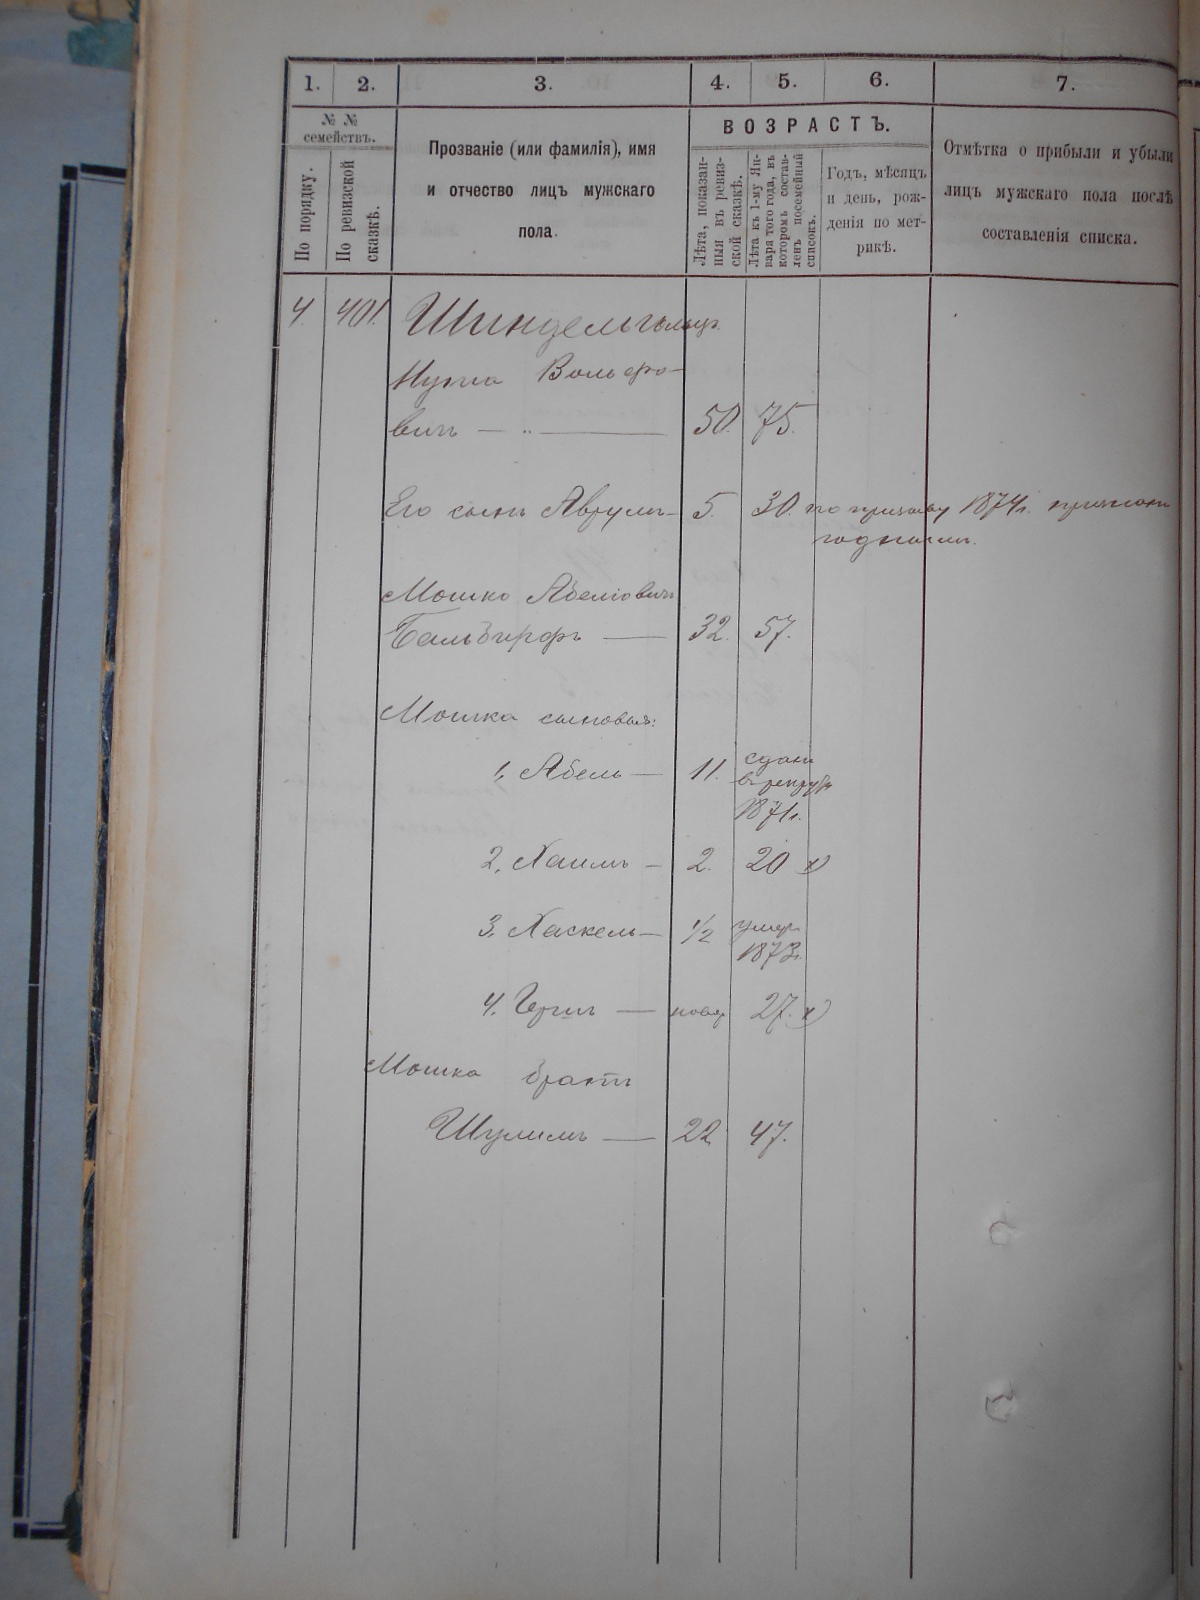 1. 2. 3. 4. 5. 6. 7.
№ №
семействъ.
По порядку.
По ревизской
сказкѣ.
Прозваніе (или фамилія), имя
и отчество лицъ мужскаго
пола.
ВОЗРАСТЪ.
Лѣта, показан-
ныя въ ревиз-
ской сказкѣ.
Лѣта къ 1-му Ян-
варя того года, въ
которомъ состав-
ленъ посемейный
списокъ.
Годъ, мѣсяцъ
и день, рож-
денія по мет-
рикѣ.
Отмѣтка о прибыли и убыли
лицъ мужскаго пола послѣ
составленія списка.
4. 401.
Вольфо-
вичъ 50. 75.
Его сынъ Аврумъ 5. 30. по призыву 1874г. признанъ
годнымъ.
Мошко Абеліовичъ
32. 57.
Мошка сыновья:
1, Абель — 11. сданъ
в рекруты
1871г.
2, Хаимъ — 2. 20 х)
3, Хаскель — 1/2 умер.
1873г.
4, — 27. х)
Мошка братъ
Шулимъ — 22 47.